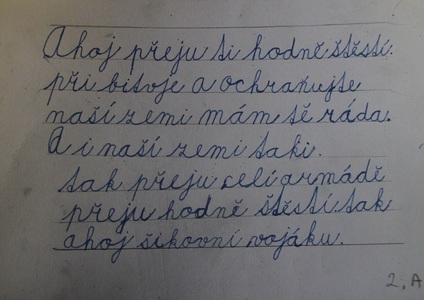 Ahoj přeju ti hodně štěstí.
při bitvje a ochraňujte
naší zemi mám tě ráda.
A i naší zemi taki.
tak přeju celí armádě
přeju hodně štěstí tak
ahoj šikovní vojáku.
2.A